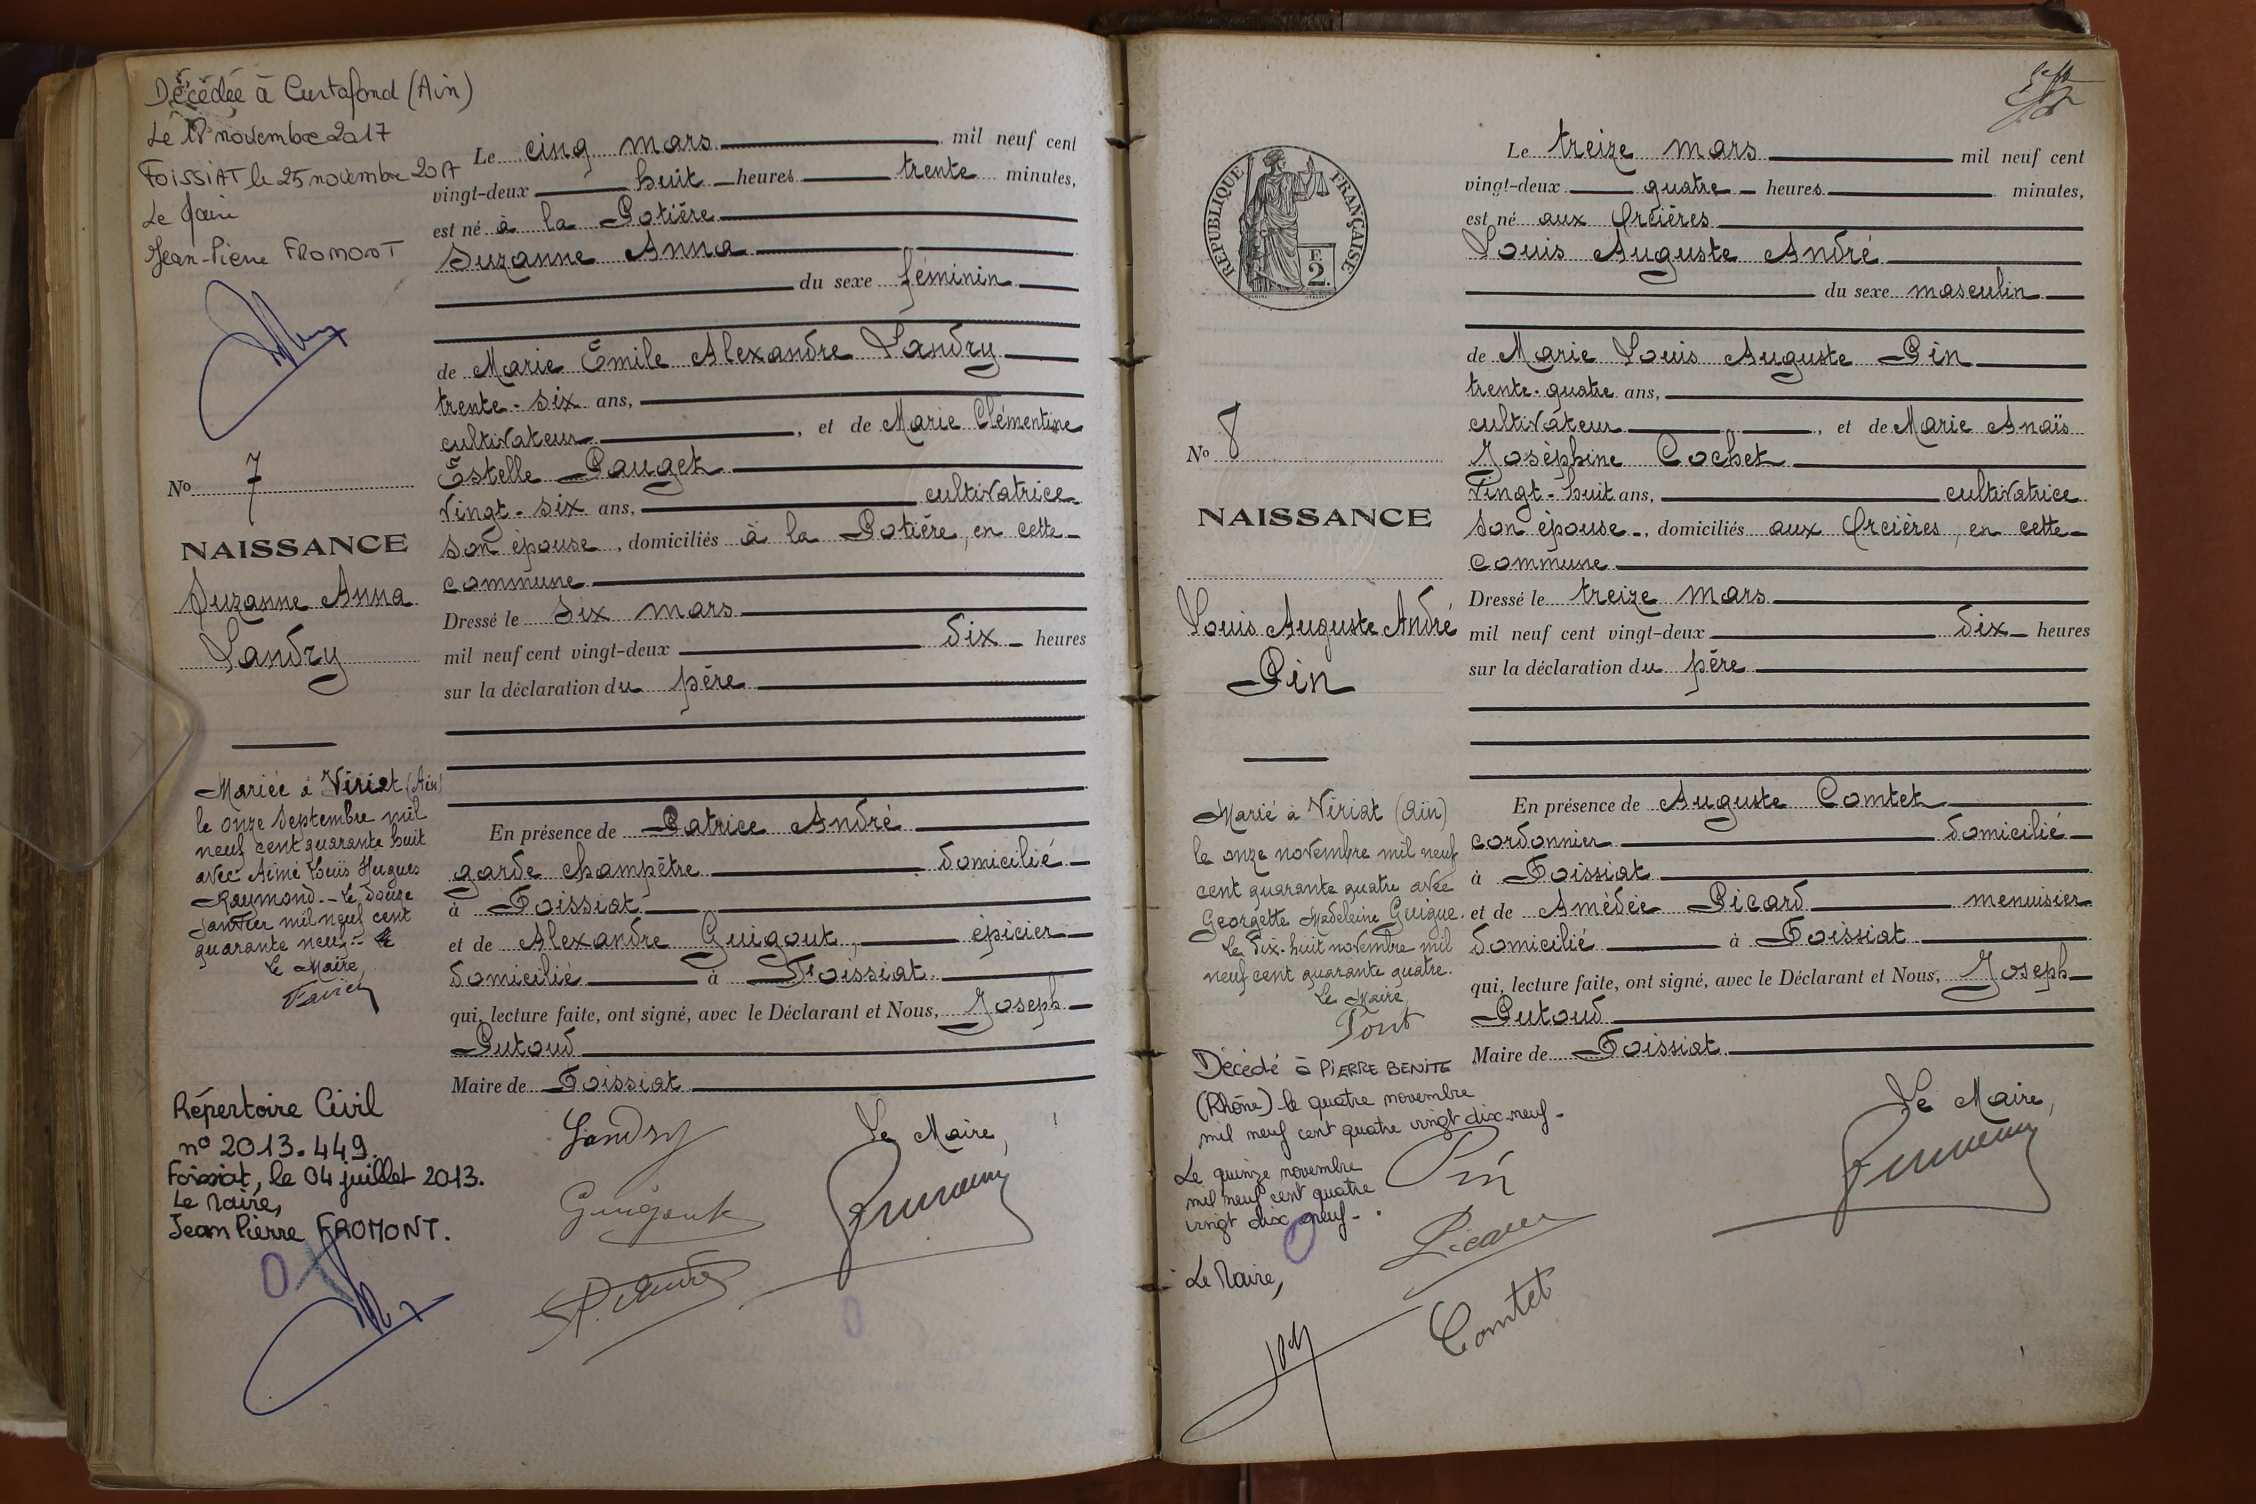 Décédée à Curtafond (Ain)
Le 18 novembre 2017
FOISSIAT le 25 novembre 2017
Le Maire
Jean-Pierre FROMONT
No 7
NAISSANCE
Suzanne Anna
Landry
Mariée à Viriat (Ain)
le onze Septembre mil
neuf cent quarante huit
avec Aimé Louis Hugues
Raymond. - Le douze
Janvier mil neuf cent
quarante neuf. -
Le Maire,
Répertoire Civil
n° 2013.449.
Foissiat, le 04 juillet 2013.
Le Maire,
Jean Pierre FROMONT.
Le cinq mars mil neuf cent
vingt-deux huit heures trente minutes,
est né à la Potière
Suzanne Anna
du sexe féminin
de Marie Émile Alexandre Landry
trente-six ans,
cultivateur, et de Marie Clémentine
Estelle Pauget
vingt-six ans, cultivatrice
son épouse, domiciliés à la Potière, en cette
commune
Dressé le six mars
mil neuf cent vingt-deux dix heures
sur la déclaration du père
En présence de Patrice André
garde champêtre domicilié
à Foissiat
et de Alexandre Guigout, épicier
domicilié à Foissiat
qui, lecture faite, ont signé, avec le Déclarant et Nous, Joseph
Putoud
Maire de Foissiat
Landry
Le Maire,
Guigout
P. André
RÉPUBLIQUE FRANÇAISE
F.
2.
No 8
NAISSANCE
Louis Auguste André
Pin
Marié à Viriat (Ain)
le onze novembre mil neuf
cent quarante quatre avec
Georgette Madeleine Guigue.
Le dix-huit novembre mil
neuf cent quarante quatre.
Le Maire,
Pont
Décédé à PIERRE BENITE
(Rhône) le quatre novembre
mil neuf cent quatre vingt dix-neuf-
Le quinze novembre
mil neuf cent quatre
vingt dix neuf-.
Le Maire,
Le treize mars mil neuf cent
vingt-deux quatre heures minutes,
est né aux Orcières
Louis Auguste André
du sexe masculin
de Marie Louis Auguste Pin
trente-quatre ans,
cultivateur, et de Marie Anaïs
Joséphine Cochet
vingt-huit ans, cultivatrice
son épouse, domiciliés aux Orcières, en cette
commune
Dressé le treize mars
mil neuf cent vingt-deux dix heures
sur la déclaration du père
En présence de Auguste Comtet
cordonnier domicilié
à Foissiat
et de Amédée Picard menuisier
domicilié à Foissiat
qui, lecture faite, ont signé, avec le Déclarant et Nous, Joseph
Putoud
Maire de Foissiat
Le Maire,
Pin
Picard
Comtet